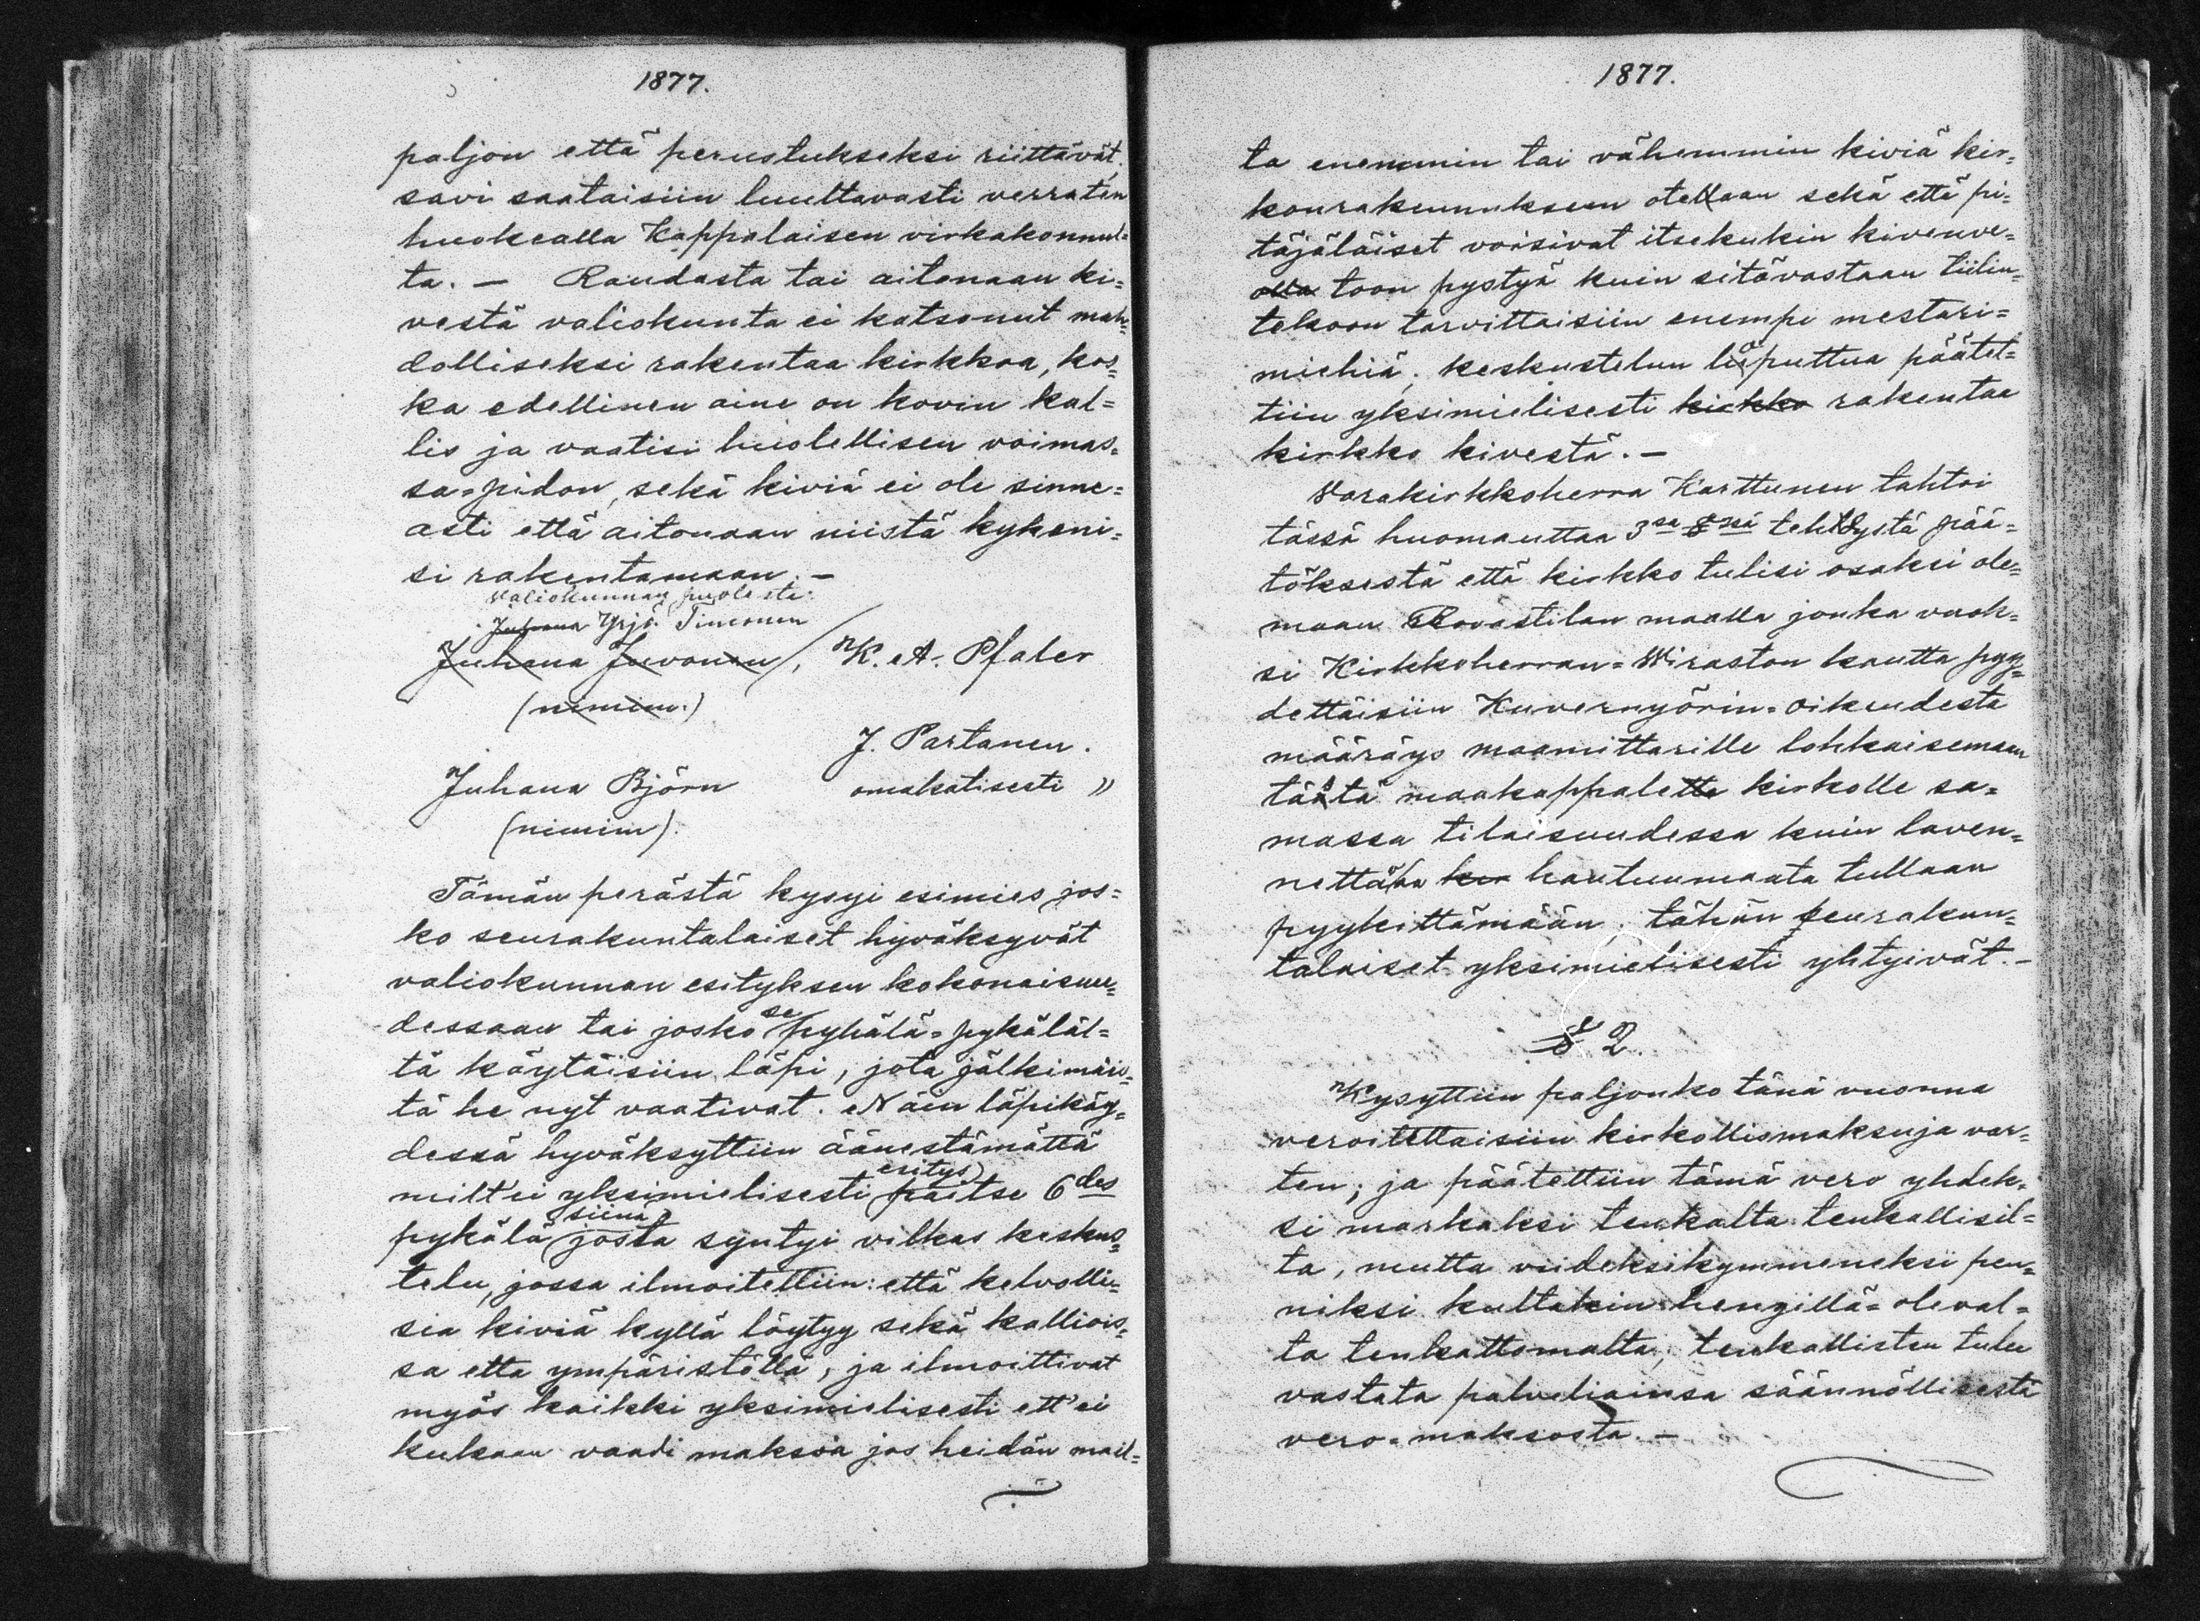 1877.
paljon että perustukseksi riittävät,
savi saataisiin luultavasti verraten
huokealla Kappalaisen virkakonnul=
ta. — Raudasta tai aitonaan ki=
vestä valiokunta ei katsonut mah=
dolliseksi rakentaa kirkkoa, kos=
ka edellinen aine on kovin kal=
lis ja vaatisi huolellisen voimas=
sa=pidon, sekä kiviä ei ole sinne=
asti että aitonaan niistä kykeni=
si rakentamaan. —
Valiokunnan puolesta:
Juhana Yrjö Timonen
Juhana Juvonen, K. A. Pfaler
(nimim.)
J. Partanen.
Juhana Björn omakätisesti "
(nimim).
Tämän perästä kysyi esimies jos=
ko seurakuntalaiset hyväksyvät
valiokunnan esityksen kokonaisuu=
dessaan tai josko se pykälä=pykäläl=
tä käytäisiin läpi, jota jälkimäis=
tä he nyt vaativat. Näin läpikäy=
dessä hyväksyttiin äänestämättä
milt'ei yksimielisesti esitys paitse 6des
pykälä siinä josta syntyi vilkas keskus=
telu, jossa ilmoitettiin: että kelvolli=
sia kiviä kyllä löytyy sekä kallios=
sa etta ympäristöllä, ja ilmoittivat
myös kaikki yksimielisesti ett'ei
kukaan vaadi maksoa jos heidän mail=
1877.
ta enemmin tai vähemmin kiviä kir=
konrakennukseen otetaan sekä että pi=
täjäläiset voisivat itsekukin kivenve=
olla toon pystyä kuin sitävastaan tiilin=
tekoon tarvittaisiin enempi mestari=
miehiä; keskustelun loputtua päätet=
tiin yksimielisesti kirkko rakentaa
kirkko kivestä. —
Varakirkkoherra Karttunen tahtoi
tässä huomauttaa 3sa §ssä tehdystä pää=
töksestä että kirkko tulisi osaksi ole=
maan Rovastilan maalla jonka vuok=
si Kirkkoherran=Wiraston kautta pyy=
dettäisiin Kuvernyörin=oikeudesta
määräys maamittarille lohkaisemaan
tästä maakappaletta kirkolle sa=
massa tilaisuudessa kuin laven=
nettävä hautuumaata tullaan
pyykittämään. tähän seurakun=
talaiset yksimielisesti yhtyivät. —
§ 2.
Kysyttiin paljonko tänä vuonna
veroitettaisiin kirkollismaksuja var=
ten; ja päätettiin tämä vero yhdek=
si markaksi tenkalta tenkallisil=
ta, mutta viideksikymmeneksi pen=
niksi kultakin hengillä=oleval=
ta tenkattomalta; tenkallisten tulee
vastata palveliainsa säännöllisestä
vero=maksosta. —